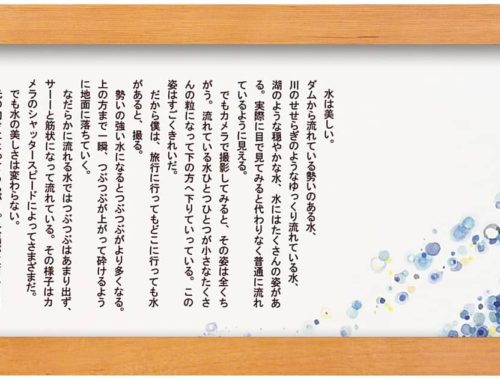 水は美しい。
ダムから流れている勢いのある水、
川のせせらぎのようなゆっくり流れている水、
湖のような穏やかな水、水にはたくさんの姿があ
る。実際に目で見てみると代わりなく普通に流れ
ているように見える。
でもカメラで撮影してみると、その姿は全くち
がう。流れている水ひとつひとつが小さなたくさ
んの粒になって下の方へ下りていっている。この
姿はすごくきれいだ。
だから僕は、旅行に行ってもどこに行っても水
があると、撮る。
勢いの強い水になるとつぶつぶがより多くなる。
上の方まで一瞬、つぶつぶが上がって砕けるよう
に地面に落ちていく。
なだらかに流れる水ではつぶつぶはあまり出ず、
サーーと筋状になって流れている。その様子はカ
メラのシャッタースピードによってさまざまだ。
でも水の美しさは変わらない。